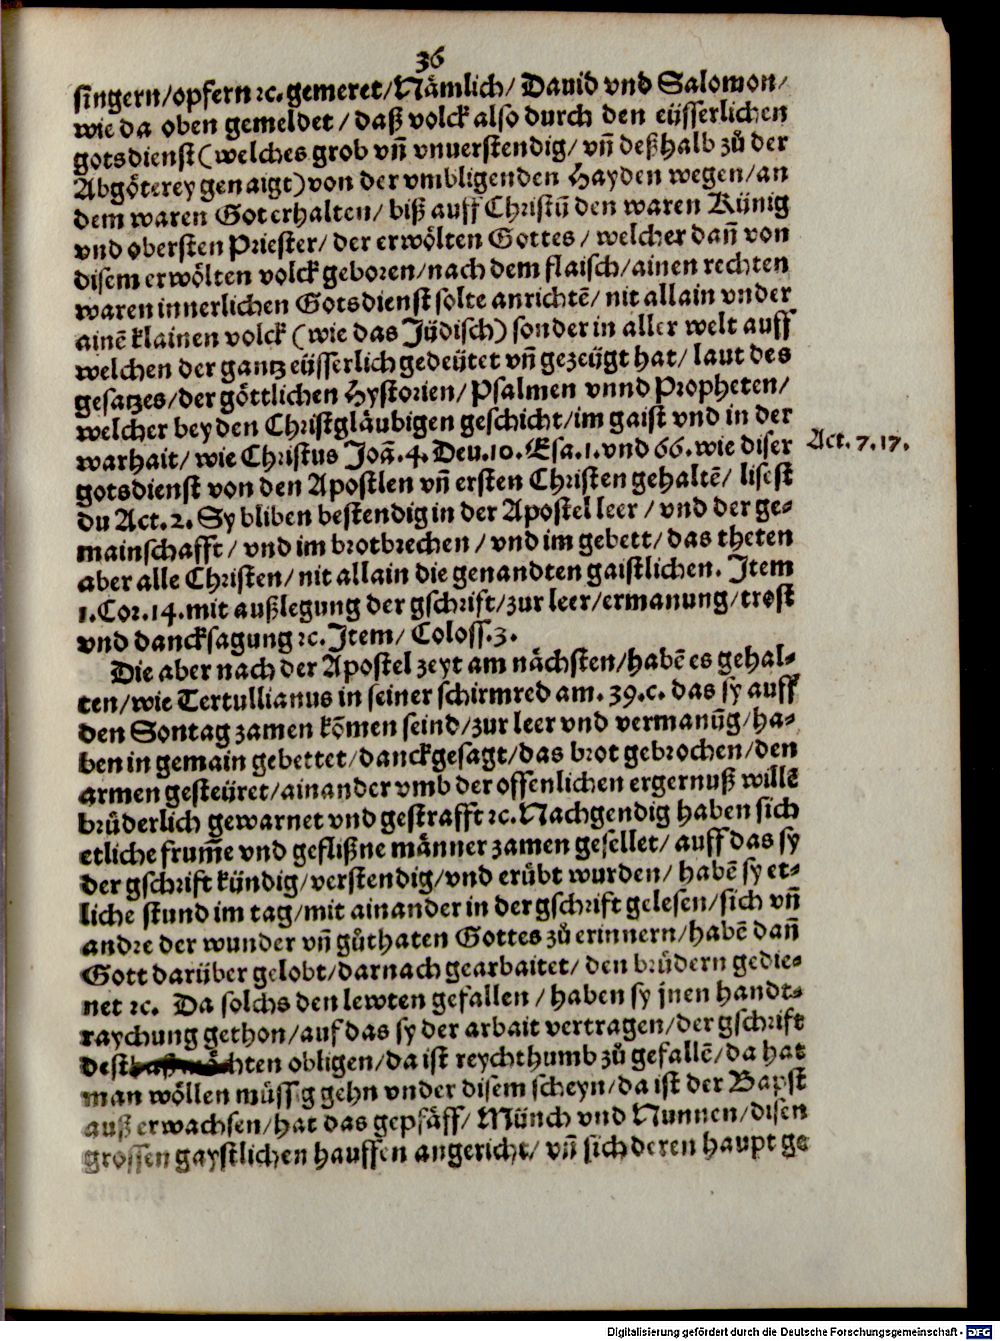 36
singern/opfern ꝛc. gemeret/Nämlich/ Dauid vnd Salomon/
wie da oben gemeldet / daß volck also durch den eüsserlichen
gotsdienst (welches grob vñ vnuerstendig/ vñ deßhalb zů der
Abgöterey genaigt) von der vmbligenden Hayden wegen/an
dem waren Got erhalten/ biß auff Christū den waren Künig
vnd obersten Priester/ der erwölten Gottes / welcher dañ von
disem erwölten volck geboren/nach dem flaisch/ainen rechten
waren innerlichen Gotsdienst solte anrichtē/ nit allain vnder
ainē klainen volck (wie das Jüdisch) sonder in aller welt auff
welchen der gantz eüsserlich gedeütet vñ gezeügt hat/ laut des
gesatzes/der göttlichen Hystorien/ Psalmen vnnd Propheten/
welcher bey den Christgläubigen geschicht/im gaist vnd in der
warhait/ wie Christus Joã.4. Deu.10. Esa.1. vnd 66. wie diser
Act. 7. 17.
gotsdienst von den Apostlen vñ ersten Christen gehaltē/ lisest
du Act.2. Sy bliben bestendig in der Apostel leer / vnd der ge-
mainschafft / vnd im brotbrechen / vnd im gebett/ das theten
aber alle Christen/ nit allain die genandten gaistlichen. Item
1.Cor.14. mit außlegung der gschrift/zur leer/ermanung/trost
vnd dancksagung ꝛc. Item/ Coloss.3.
Die aber nach der Apostel zeyt am nächsten/habē es gehal-
ten/wie Tertullianus in seiner schirmred am. 39.c. das sy auff
den Sontag zamen kōmen seind/zur leer vnd vermanūg/ha-
ben in gemain gebettet/danckgesagt/das brot gebrochen/den
armen gesteüret/ainander vmb der offenlichen ergernuß willē
brüderlich gewarnet vnd gestrafft ꝛc. Nachgendig haben sich
etliche frum̄e vnd geflißne männer zamen gesellet/ auff das sy
der gschrift kündig/verstendig/vnd erübt wurden/ habē sy et-
liche stund im tag/mit ainander in der gschrift gelesen/sich vñ
andre der wunder vñ gůthaten Gottes zů erinnern/habē dañ
Gott darüber gelobt/darnach gearbaitet/ den brüdern gedie-
net ꝛc. Da solchs den lewten gefallen / haben sy jnen handt-
raychung gethon/auf das sy der arbait vertragen/der gschrift
dest obligen/da ist reychthumb zů gefallē/da hat
man wöllen müssig gehn vnder disem scheyn/da ist der Bapst
auß erwachsen/hat das gepfäff/ Münch vnd Nunnen/disen
grossen gaystlichen hauffen angericht/ vñ sich deren haupt ge
Digitalisierung gefördert durch die Deutsche Forschungsgemeinschaft - DFG